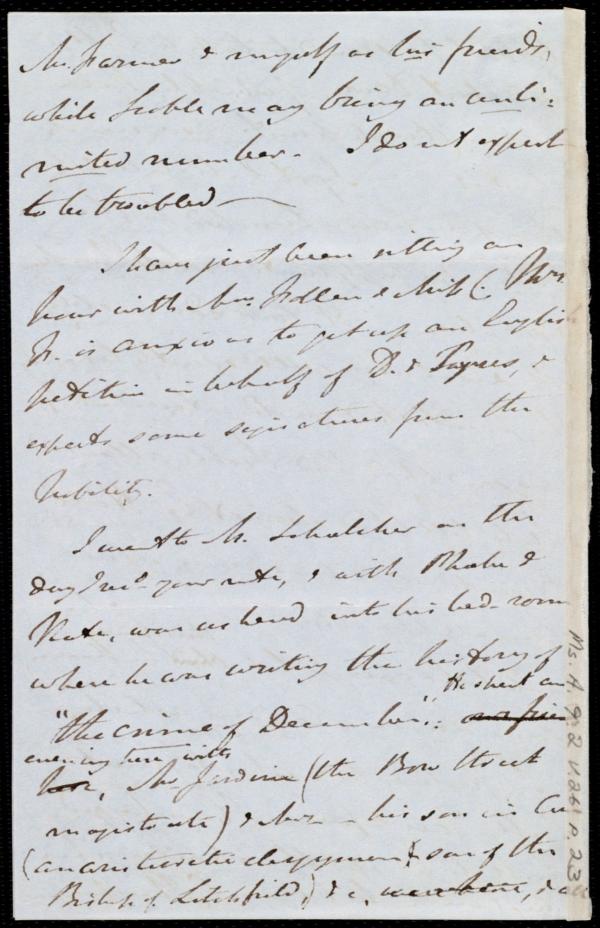 Mr. Farmer & myself as his friends,
while Scoble may bring an unli-
mited number. I do not expect
to be troubled —
I have just been sitting an
hour with Mrs. Follen & Miss C. Mrs.
F. is anxious to get up an English
petition in behalf of D. & Sayres, &
expects some signatures from the
Nobility.
I went to M. Schœlcher on the
day I recd. your note, & with Phœbe &
Kate, was ushered into his bed-room
where he was writing the history of
"The crime of December". He spent an
evening here with
Mr. Jardine (the Bow Street
magistrate) & Mrs. — his son in
(an aristocratic clergyman & son of the
Bishop of Litchfield,) & c, were here, &
Ms. A. 9. 2 v. 26 p. 23